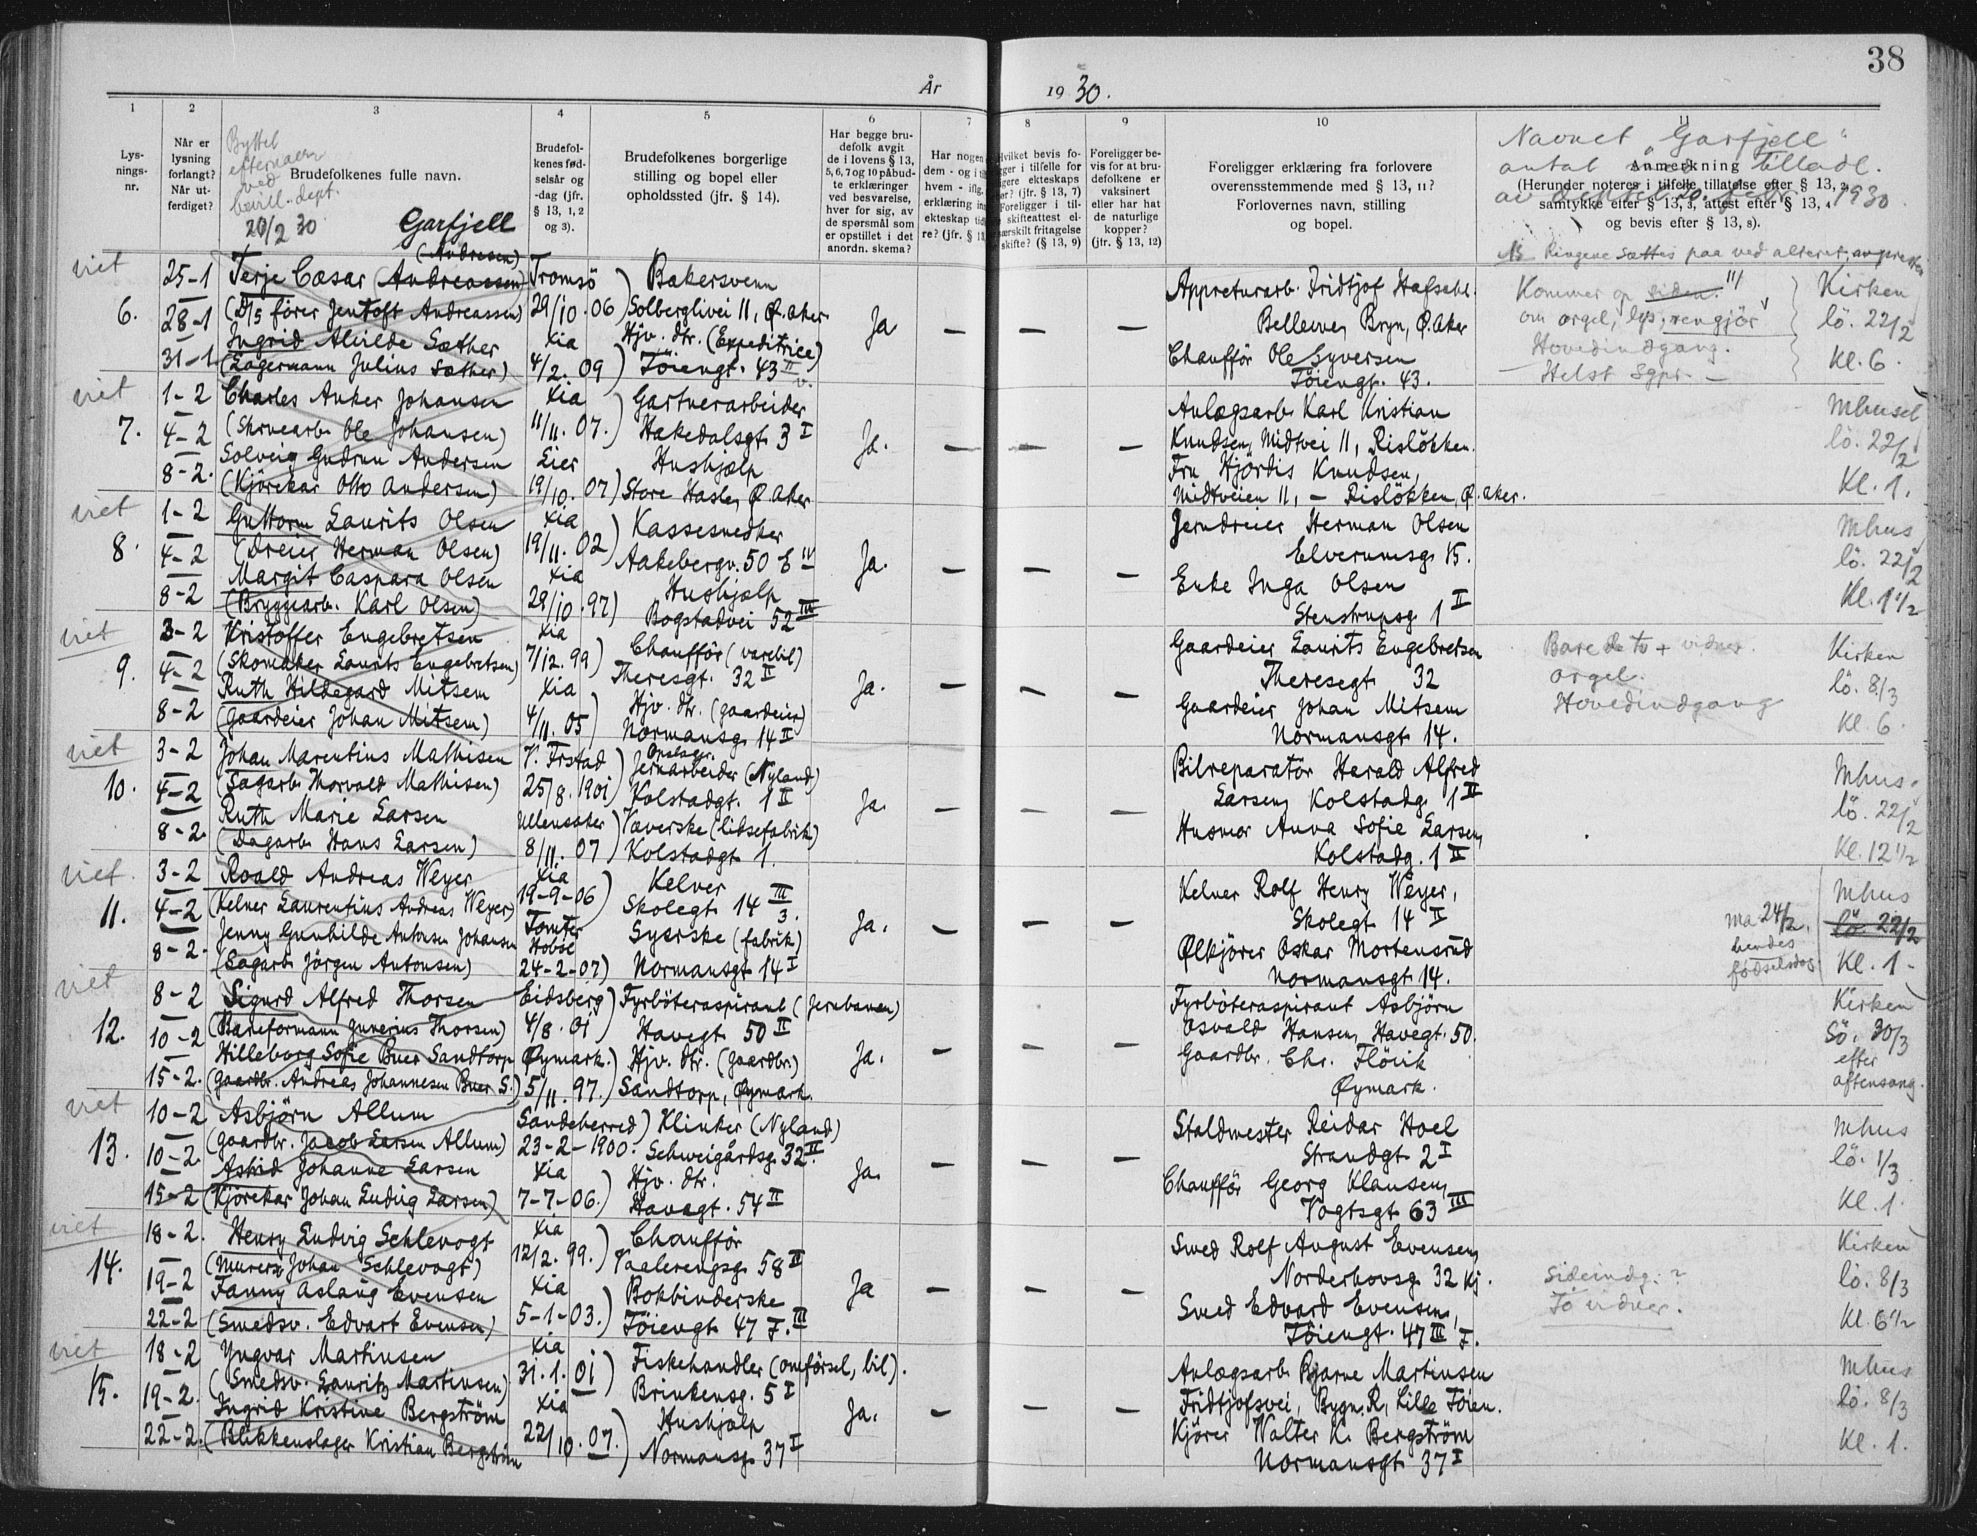 38
År 1930.
1 2 3 4 5 6 7 8 9 10 11
Lysningsnr.
Når er lysning forlangt? Når utferdiget?
Brudefolkenes fulle navn.
Byttet efternavn ved bevill. dept. 20/2 30
Brudefolkenes fødselsår og -dag (jfr. § 13, 1, 2 og 3).
Brudefolkenes borgerlige stilling og bopel eller opholdssted (jfr. § 14).
Har begge brudefolk avgit de i lovens § 13, 5, 6, 7 og 10 påbudte erklæringer ved besvarelse, hver for sig, av de spørsmål som er opstillet i det anordn. skema?
Har nogen
Foreligger bevis for at brudefolkene er vaksinert eller har hat de naturlige kopper? (jfr. § 13, 12)
Foreligger erklæring fra forlovere overensstemmende med § 13, 11? Forlovernes navn, stilling og bopel.
Anmerkning
(Herunder noteres i tilfelle tillatelse efter § 13, 2, samtykke efter § 13, 3, attest efter § 13, 4 og bevis efter § 13, 8).
Navnet "Garfjell"
antat tilladl.
1930
NB Ringene sættes paa ved alteret, av presten
viet
6.
25-1
28-1
31-1
Garfjell
(Andresen)
Terje Cæsar (Andreassen)
(D/S fører Jentoft Andreassen)
Ingrid Alvilde Sæther
(Lagermann Julius Sæther)
Tromsö
29/10. 06
Xia
4/2. 09
Bakersvenn
Solberglivei 11, Ø. Aker
Hjv. dtr. (Expeditrice)
Töiengt. 43 II
Ja
Appreturarb. Fridtjof Hafsahl
Bellevue, Bryn, Ø. Aker
Chaufför Ole Syversen
Töiengt. 43.
Kommer op siden. 11/
om orgel, lys, rengjör
Hovedindgang.
Kirken
lö. 22/2
Kl. 6
viet
7.
1-2
4-2
8-2.
Charles Anker Johansen
(Skruearb. Ole Johansen)
Solveig Gudrun Andersen
(Kjörekar Otto Andersen)
Xia
11/11. 07.
Eier
19/10. 07
Gartnerarbeider
Hakedalsgt. 3 I
Hushjælp
Store Hasle, Ø. Aker
Ja.
Anlægsarb. Karl Kristian
Knudsen, Midtvei 11, Rislökken.
Fru Hjördis Knudsen,
Midtveien 11, – Rislökken, Ø. Aker.
Mhuset
lö. 22/2
Kl. 1.
viet
8.
1-2
4-2
8-2
Guttorm Laurits Olsen
(Dreier Herman Olsen)
Margit Caspara Olsen
(Bryggearb. Karl Olsen)
Xia
19/11. 02
Xia
29/10. 97
Kassesnedker
Aakebergv. 50 E IV
Hushjælp
Bogstadvei 52 III
Ja.
Jerndreier Herman Olsen
Elverumsg. 15.
Enke Inga Olsen
Stenstrupsg. 1 II
Mhus
lö. 22/2
Kl. 1 1/2
viet
9.
3-2
4-2
8-2
Kristoffer Engebretsen
(Skomaker Laurits Engebretsen)
Ruth Hildegard Mitsem
(Gaardeier Johan Mitsem)
Xia
7/12. 99
Xia
4/11. 05
Chaufför (varebil)
Theresegt. 32 II
Hjv. dtr. (gaardeier)
Normansg. 14 II
Ja.
Gaardeier Laurits Engebretsen
Theresegt. 32
Gaardeier Johan Mitsem
Normansgt. 14.
Bare de to + vidner.
orgel.
Hovedindgang
Kirken
lö. 8/3
Kl. 6
viet
10.
3-2
4-2
8-2.
Johan Marentius Mathisen
(Sagarb. Thorvald Mathisen)
Ruth Marie Larsen
(Dagarb. Hans Larsen)
25/8. 1901
Ullensaker
8/11. 07
Jernarbeider (Nyland)
Kolstadgt. 1 II
Væverske (lidsefabrik)
Kolstadgt. 1.
Ja.
Bilreparatör Harald Alfred
Larsen, Kolstadg. 1 II
Husmor Anna Sofie Larsen,
Kolstadg. 1 II
Mhus.
lö. 22/2
Kl. 12 1/2
viet.
11.
3-2
4-2
8-2.
Roald Andreas Weyer
(Kelner Laurentius Andreas Weyer)
Jenny Gunhilde Antonsen Johansen
(Sagarb. Jörgen Antonsen)
Xia
19-9-06
Tomter
Hobøl
24-2-07
Kelner
Skolegt. 14 III
3.
Syerske (fabrik)
Normansgt. 14 I
Ja.
Kelner Rolf Henry Weyer,
Skolegt. 14 II
Ølkjörer Oskar Mortensrud
Normansgt. 14.
ma 24/2
hendes
fødselsdag
Mhus
lö. 22/2
Kl. 1
viet
12.
8-2
10-2
15-2.
Sigurd Alfred Thorsen
(Baneformann Gunerius Thorsen)
Hilleborg Sofie Buer Sandtorp
(Gaardbr. Andreas Johannesen Buer S.)
Eidsberg
4/8. 01
Øymark.
5/11. 97.
Fyrböteraspirant (Jernbanen)
Havegt. 50 II
Hjv. dtr. (gaardbr.)
Sandtorp, Øymark.
Ja.
Fyrböteraspirant Asbjörn
Osvald Hansen, Havegt. 50.
Gaardbr. Chr. Flövik
Øymark.
Kirken
Sö. 30/3
efter
aftensang.
viet
13.
10-2
10-2.
15-2
Asbjörn Allum
(Gaardbr. Jacob Larsen Allum)
Astrid Johanne Larsen
(Kjörekar Johan Ludvig Larsen)
Sandeherred
23-2-1900.
Xia
7-7-06.
Klinker (Nyland)
Schweigårdsg. 32 II.
Hjv. dtr.
Havegt. 54 II
Ja.
Staldmester Reidar Hoel
Strandgt. 2 I
Chaufför Georg Klausen,
Vogtsgt. 63 III
Mhus
lö. 1/3
Kl. 1.
viet
14.
18-2.
19-2
22-2
Henry Ludvig Schlevogt
(Murer Johan Schlevogt)
Fanny Aslaug Evensen
(Smedsv. Edvart Evensen)
Xia
12/2. 99.
Xia
5-1-03.
Chaufför
Vaalerengsg. 58 II
Bokbinderske
Töiengt. 47 F. III
Ja
Smed Rolf August Evensen,
Norderhovsg. 32 kj.
Smed Edvard Evensen,
Töiengt. 47 III F.
Sideindg. ?
To vidner.
Kirken
lö. 8/3
Kl. 6 1/2
viet
15.
18-2
19-2.
22-2.
Yngvar Martinsen
(Smedsv. Lauritz Martinsen)
Ingrid Kristine Bergström
(Blikkenslager Kristian Bergström
Xia
31.1.01
Xia
22/10. 07.
Fiskehandler (omförsel, bil).
Brinkensg. 5 I
Hushjælp
Normansg. 37 I
Ja.
Anlægsarb. Bjarne Martinsen
Fridtjofsvei, Bygn. R, Lille Töien.
Kjörer Walter K. Bergström
Normansgt. 37 I
Mhus
lö. 8/3
Kl. 1.